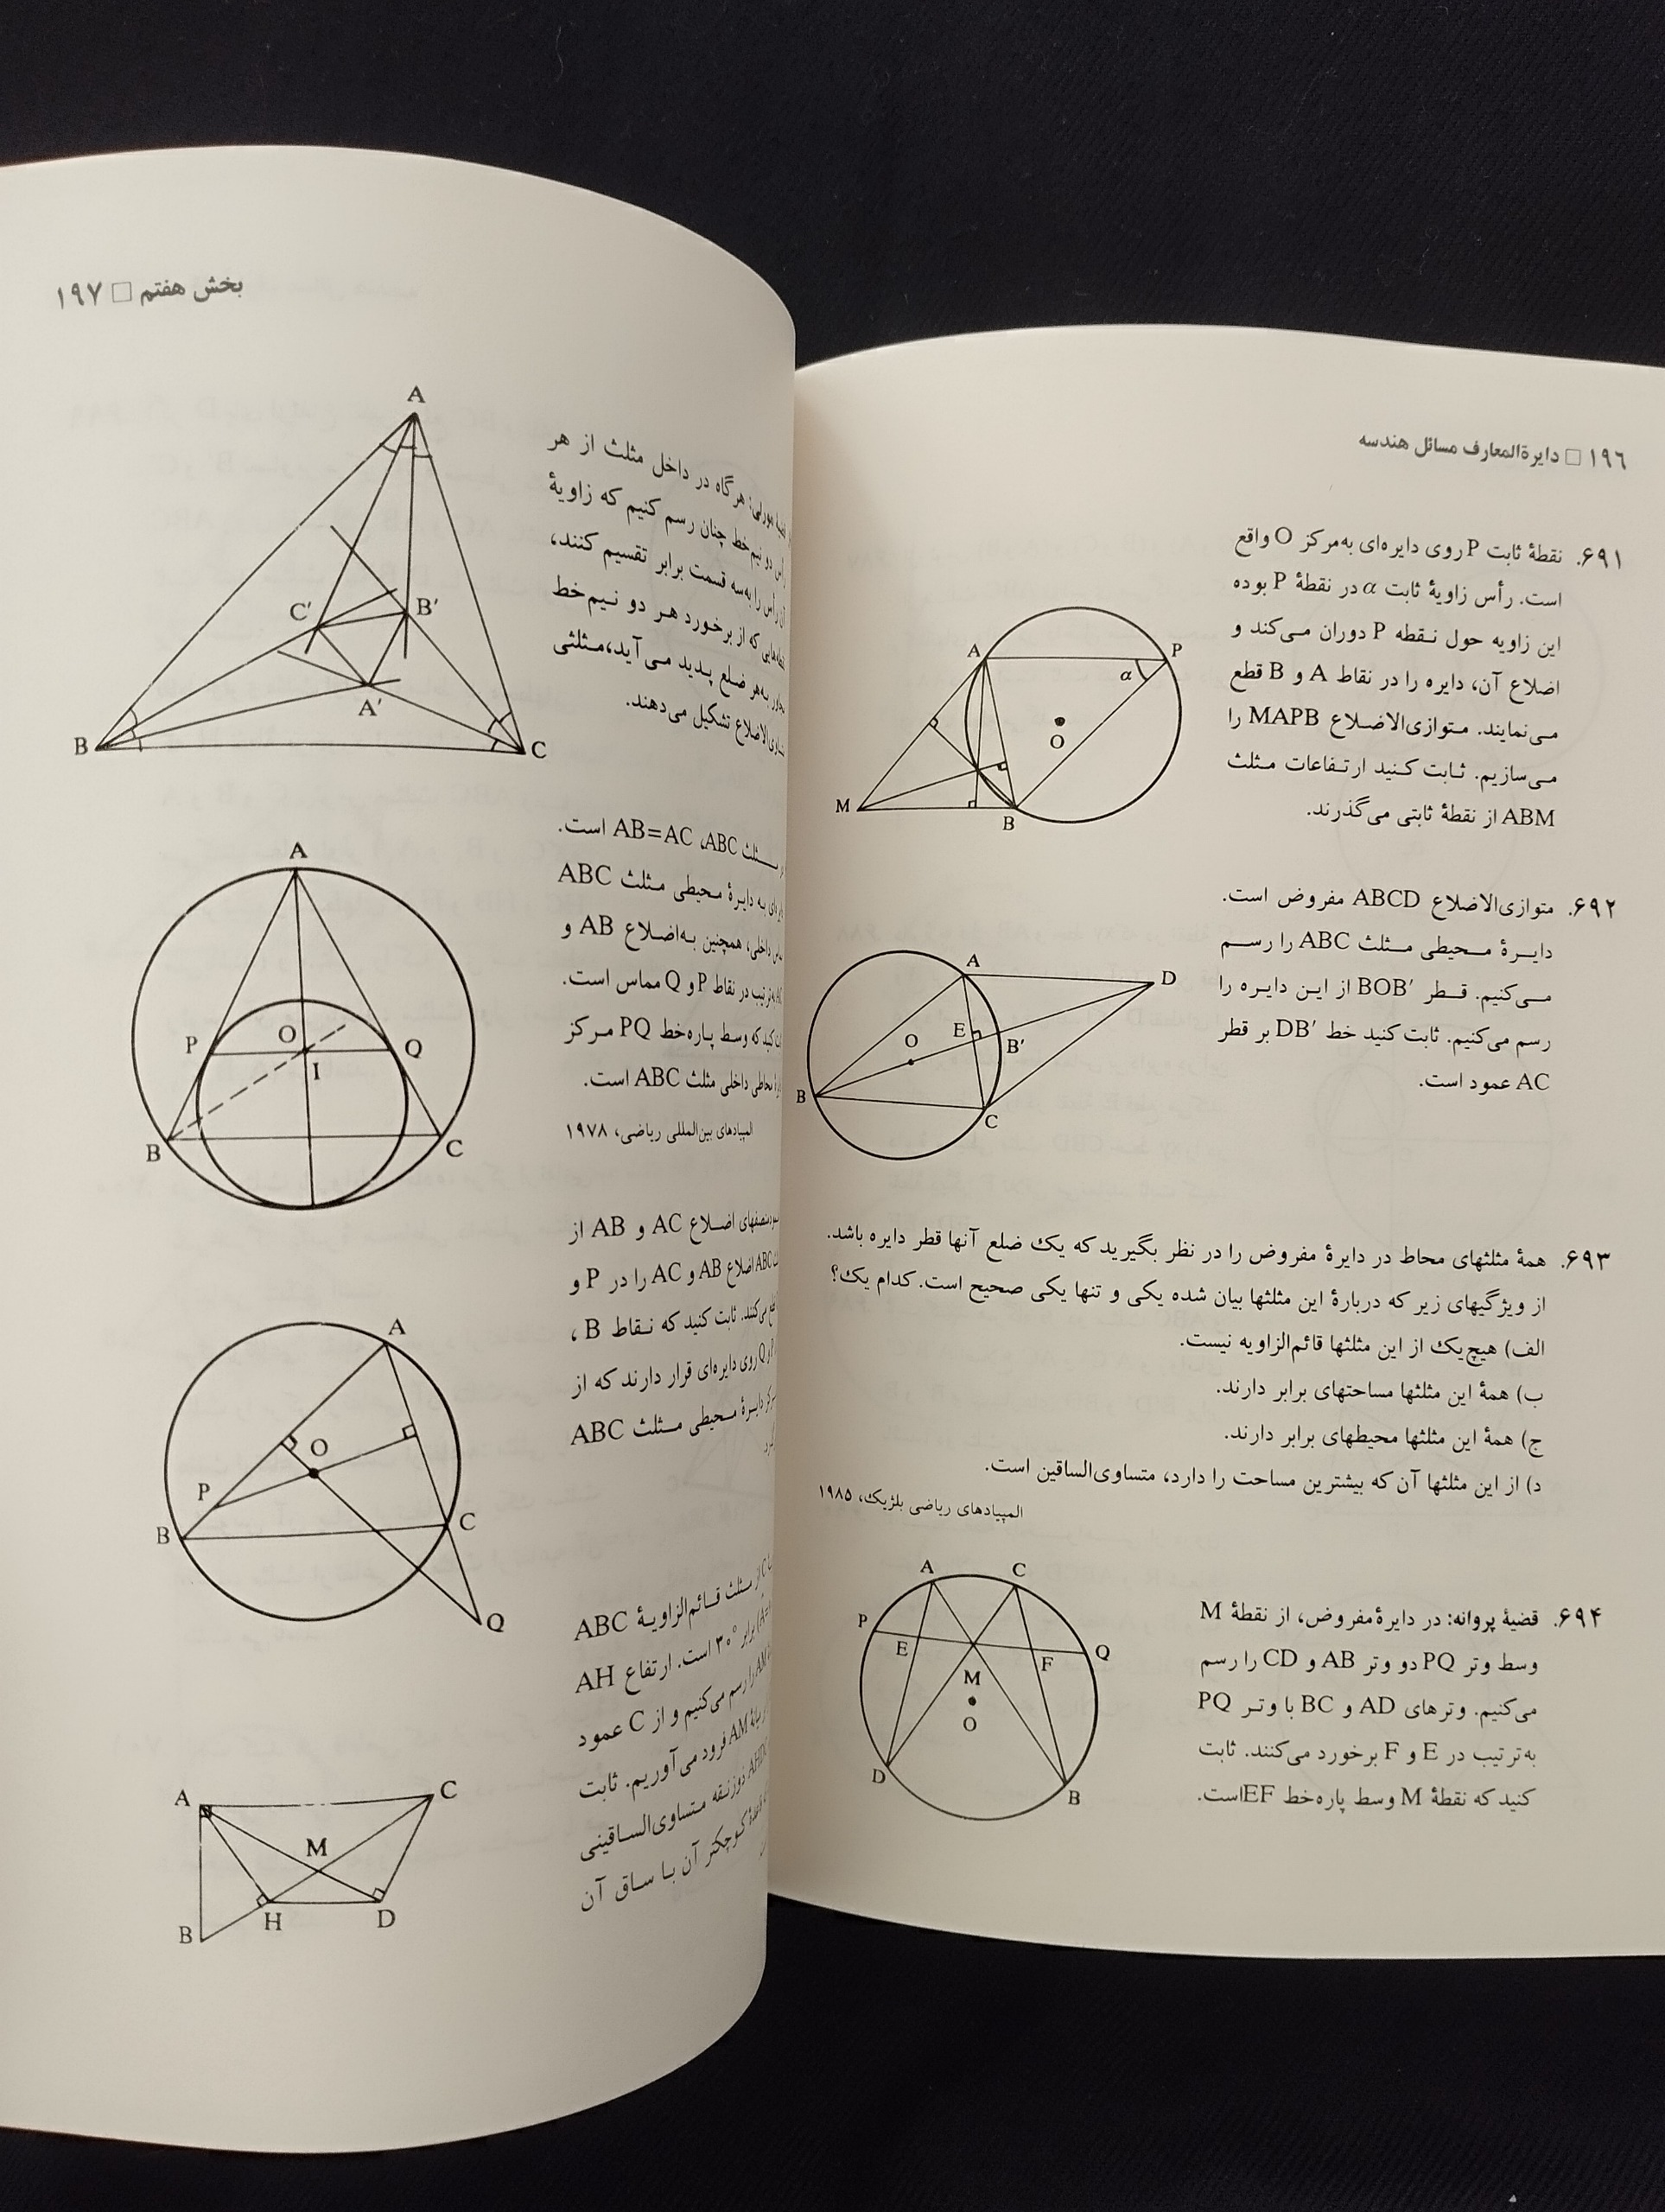 ۱۹۶ □ دایرة‌المعارف مسائل هندسه
۶۹۱. نقطهٔ ثابت P روی دایره‌ای به‌مرکز O واقع
است. رأس زاویهٔ ثابت α در نقطهٔ P بوده
این زاویه حول نقطه P دوران می‌کند و
اضلاع آن، دایره را در نقاط A و B قطع
می‌نمایند. متوازی‌الاضلاع MAPB را
می‌سازیم. ثابت کنید ارتفاعات مثلث
ABM از نقطهٔ ثابتی می‌گذرند.
A
P
α
O
M
B
۶۹۲. متوازی‌الاضلاع ABCD مفروض است.
دایرهٔ محیطی مثلث ABC را رسم
می‌کنیم. قطر BOB′ از این دایره را
رسم می‌کنیم. ثابت کنید خط DB′ بر قطر
AC عمود است.
A
D
E
O
B′
B
C
۶۹۳. همهٔ مثلثهای محاط در دایرهٔ مفروض را در نظر بگیرید که یک ضلع آنها قطر دایره باشد.
از ویژگیهای زیر که دربارهٔ این مثلثها بیان شده یکی و تنها یکی صحیح است. کدام یک؟
الف) هیچ‌یک از این مثلثها قائم‌الزاویه نیست.
ب) همهٔ این مثلثها مساحتهای برابر دارند.
ج) همهٔ این مثلثها محیطهای برابر دارند.
د) از این مثلثها آن که بیشترین مساحت را دارد، متساوی‌الساقین است.
المپیادهای ریاضی بلژیک، ۱۹۸۵
۶۹۴. قضیهٔ پروانه: در دایرهٔ مفروض، از نقطهٔ M
وسط وتر PQ دو وتر AB و CD را رسم
می‌کنیم. وترهای AD و BC با وتر PQ
به‌ترتیب در E و F برخورد می‌کنند. ثابت
کنید که نقطهٔ M وسط پاره‌خط EF است.
A
C
P
E
Q
F
M
O
D
B
بخش هفتم □ ۱۹۷
مورلی: هرگاه در داخل مثلث از هر
دو نیم‌خط چنان رسم کنیم که زاویهٔ
رأس را به‌سه قسمت برابر تقسیم کنند،
که از برخورد هر دو نیم‌خط
به‌هر ضلع پدید می‌آید، مثلثی
تشکیل می‌دهند.
A
C′
B′
A′
B
C
ABC، AB=AC است.
به دایرهٔ محیطی مثلث ABC
داخلی، همچنین به‌اضلاع AB و
به‌ترتیب در نقاط P و Q مماس است.
که وسط پاره‌خط PQ مرکز
محاطی داخلی مثلث ABC است.
المپیادهای بین‌المللی ریاضی، ۱۹۷۸
A
P
O
Q
I
B
C
اضلاع AC و AB از
ABC اضلاع AB و AC را در P و
می‌کنند. ثابت کنید که نقاط B،
Q روی دایره‌ای قرار دارند که از
دایرهٔ محیطی مثلث ABC
A
O
P
B
C
Q
C از مثلث قائم‌الزاویهٔ ABC
برابر ۳۰° است. ارتفاع AH
AM را رسم می‌کنیم و از C عمود
AM فرود می‌آوریم. ثابت
ذوزنقه متساوی‌الساقینی
کوچکتر آن با ساق آن
A
C
M
B
H
D